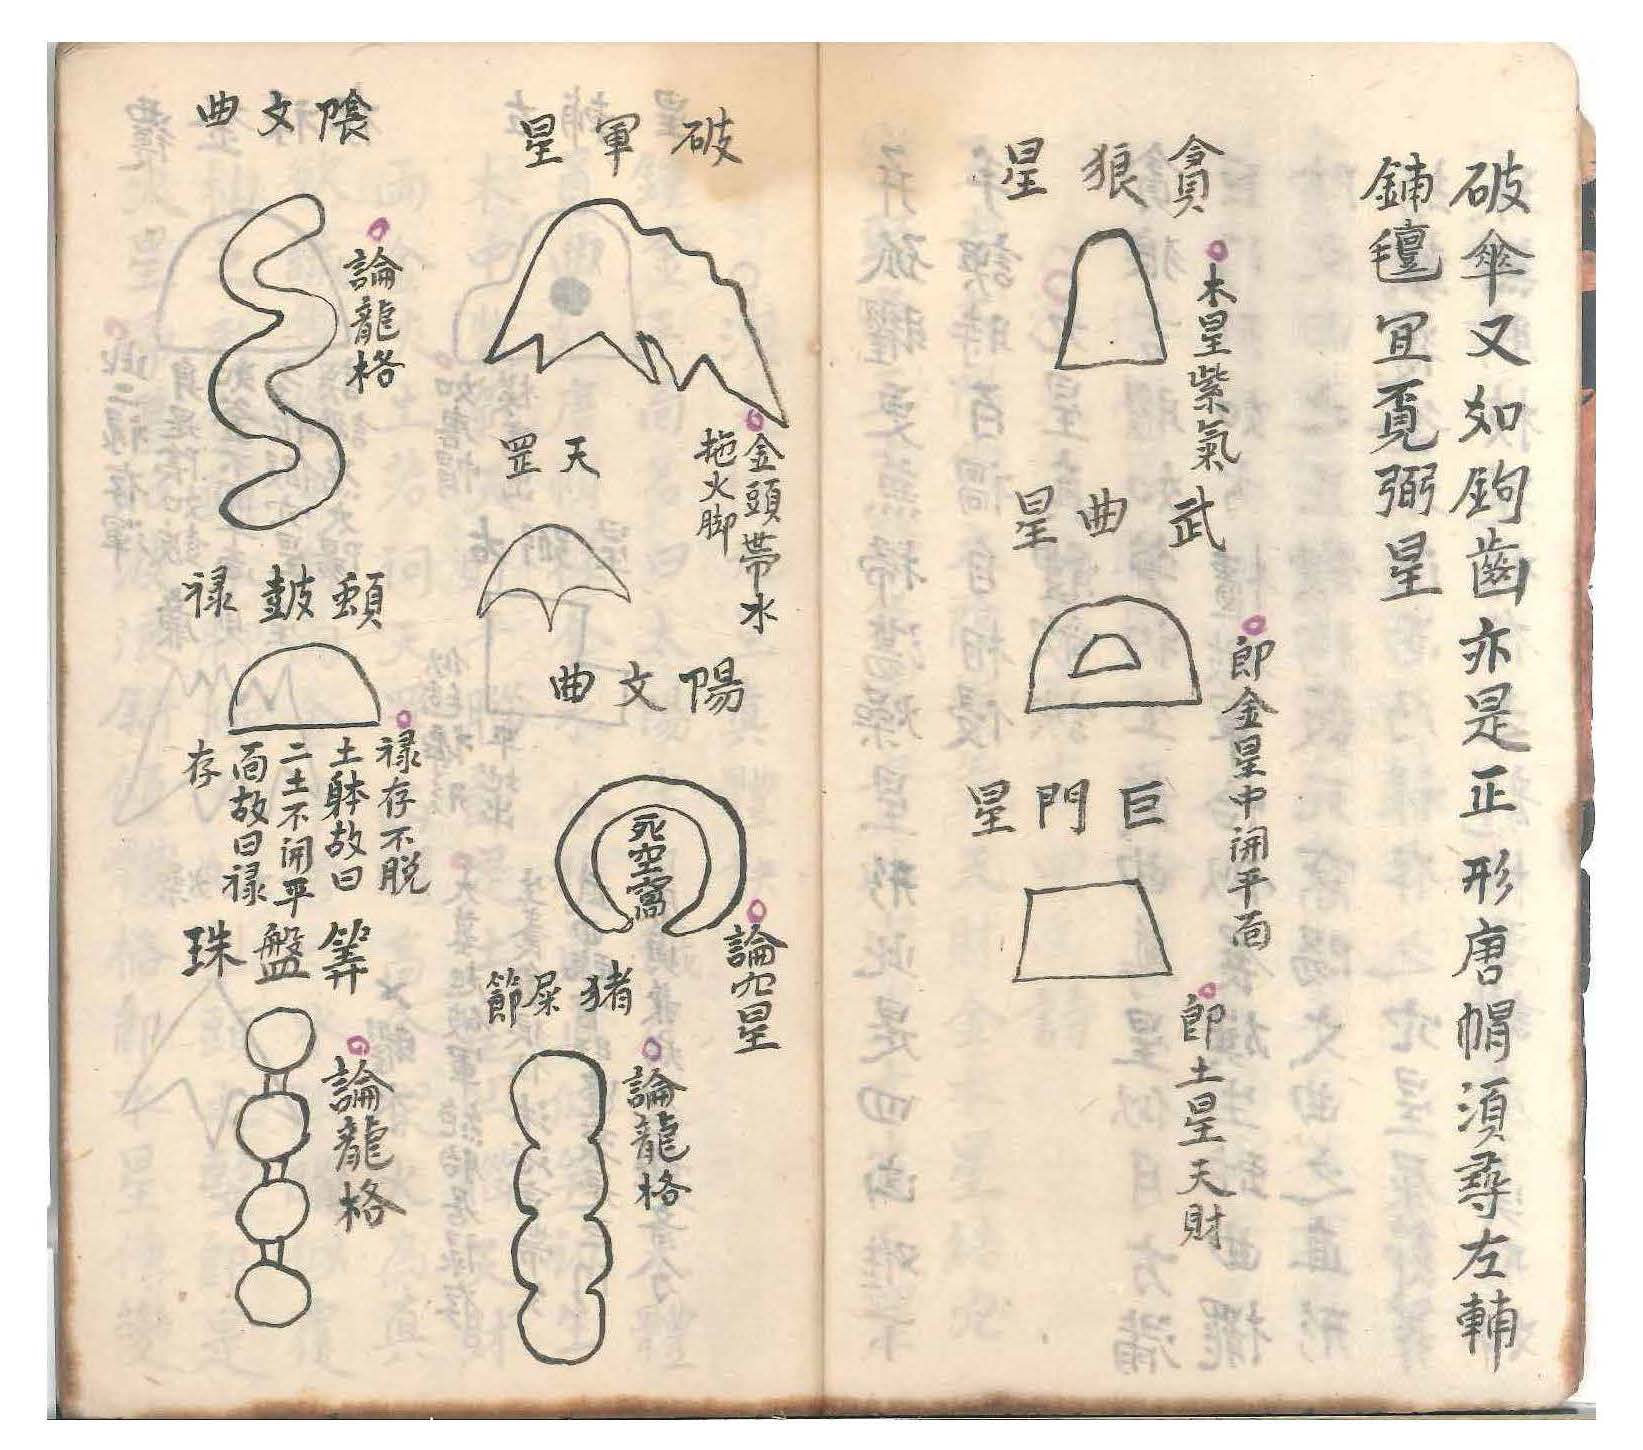 破傘又如鉤齒亦是正形唐帽須尋左輔
鋪氊宜覓弼星
貪狼星
木星紫氣
武曲星
郎金星中開平面
巨門星
郎土星天財
破軍星
金頭帶水
拖火脚
天罡
陽文曲
死空窩
論穴星
猪屎節
論龍格
陰文曲
論龍格
頓鼓禄
禄存不脱
土躰故曰
二土不開平
面故曰禄
存
筭盤珠
論龍格